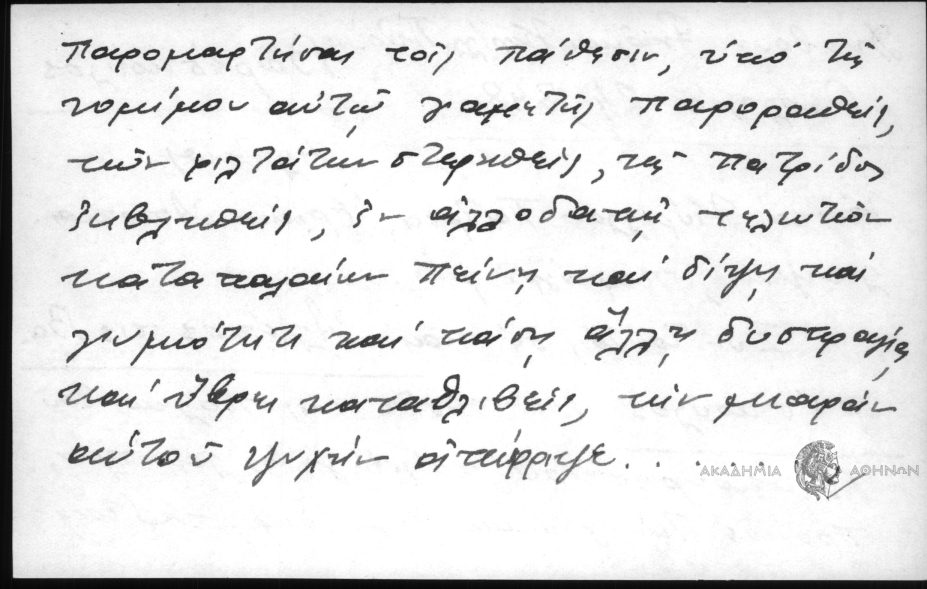 παρομαρτήσαι τοῖς πάθεσιν, ὑπό τῆς
νομίμου αὐτῷ γαμετῆς παροραθείς,
τῶν φιλτάτων στερηθείς, τῆς πατρίδος
ἐκβληθείς, ἐν ἀλλοδαπῇ τελευτῶν
καταπαλαίων πείνῃ καί δίψῃ καί
γυμνότητι καί πάσῃ ἄλλῃ δυστυχίᾳ
καί ὕβρει καταθλιβείς, τήν μιαράν
αὐτοῦ ψυχήν ἀπέρριψε.......
ΑΚΑΔΗΜΙΑ ΑΘΗΝΩΝ